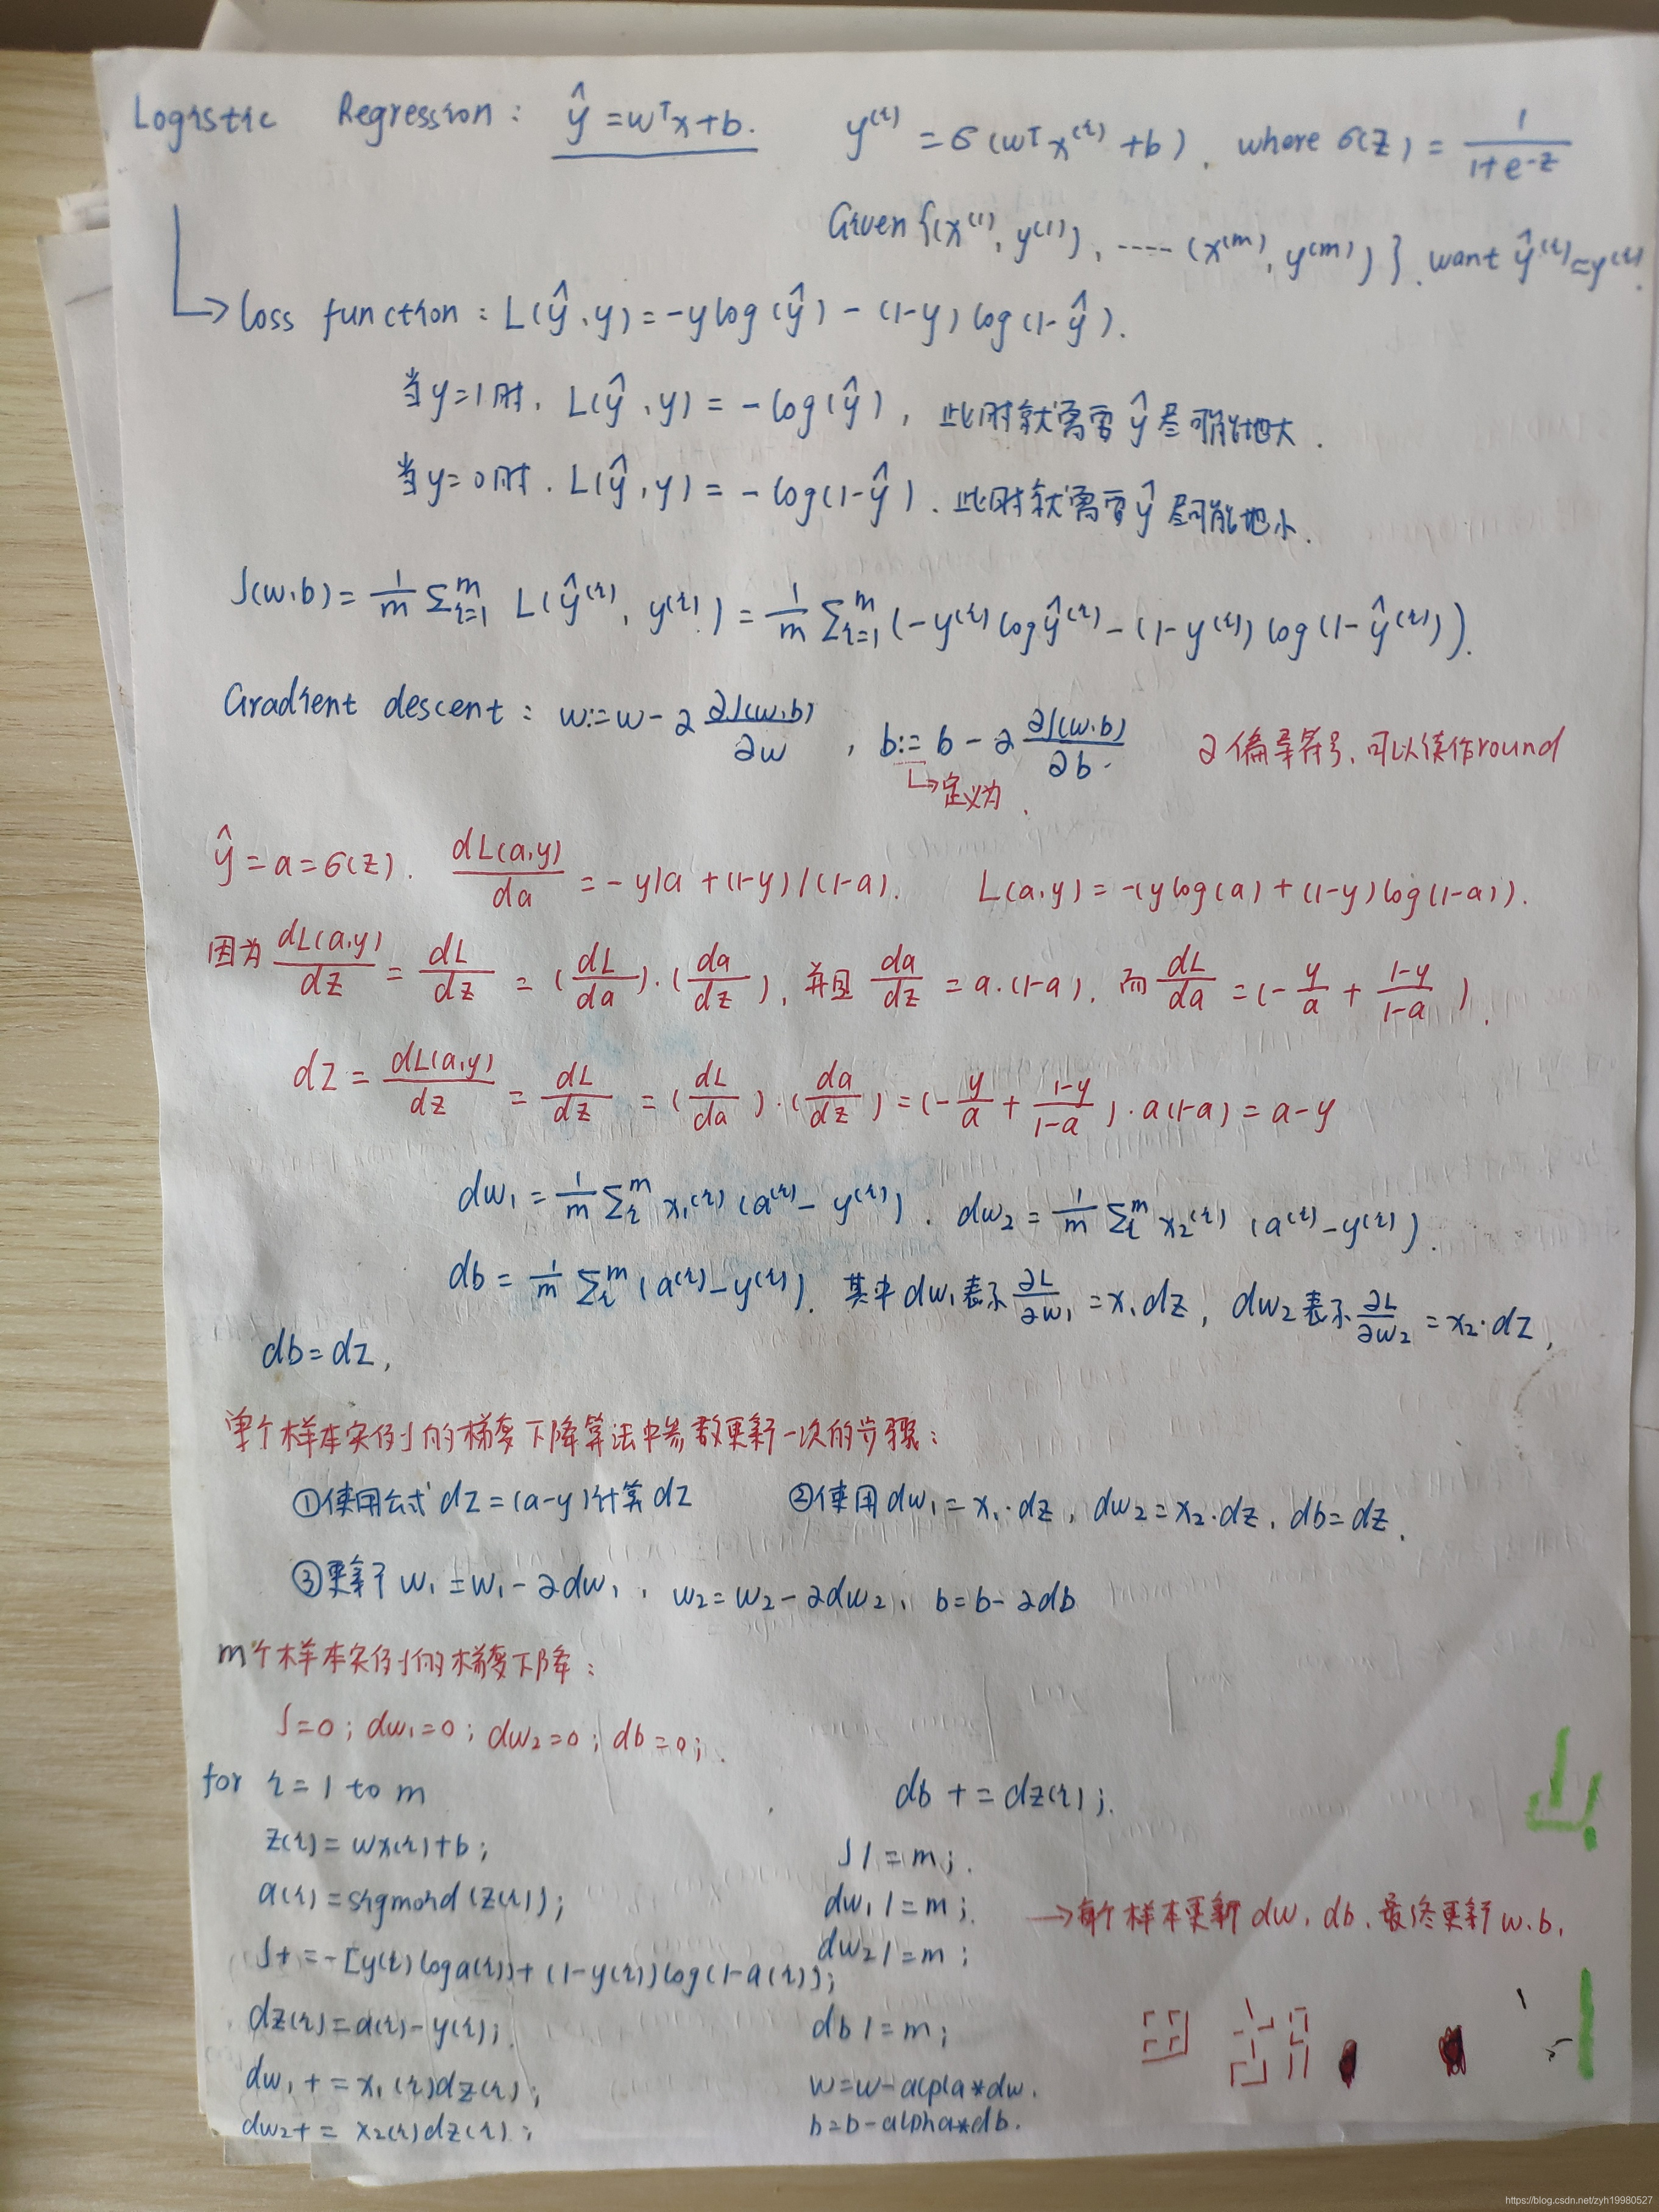 Logistic Regression: ŷ = wᵀx+b. y⁽ⁱ⁾ = σ(wᵀx⁽ⁱ⁾+b), where σ(z) = 1/(1+e^-z)
Given {(x⁽¹⁾, y⁽¹⁾), ---- (x⁽ᵐ⁾, y⁽ᵐ⁾)}, want ŷ⁽ⁱ⁾≈y⁽ⁱ⁾.
↳ loss function: L(ŷ,y) = -ylog(ŷ) - (1-y)log(1-ŷ).
当y=1时, L(ŷ,y) = -log(ŷ), 此时就需要ŷ尽可能地大.
当y=0时, L(ŷ,y) = -log(1-ŷ). 此时就需要ŷ尽可能地小.
J(w,b) = 1/m Σᵢ₌₁ᵐ L(ŷ⁽ⁱ⁾, y⁽ⁱ⁾) = 1/m Σᵢ₌₁ᵐ (-y⁽ⁱ⁾logŷ⁽ⁱ⁾ - (1-y⁽ⁱ⁾)log(1-ŷ⁽ⁱ⁾)).
Gradient descent: w:=w-∂ ∂J(w,b)/∂w, b:=b-∂ ∂J(w,b)/∂b. ∂偏导符号,可以读作round
↳定义为.
ŷ=a=σ(z). dL(a,y)/da = -y/a+(1-y)/(1-a). L(a,y) = -(ylog(a)+(1-y)log(1-a)).
因为 dL(a,y)/dz = dL/dz = (dL/da)·(da/dz), 并且 da/dz = a·(1-a), 而 dL/da = (-y/a + (1-y)/(1-a)).
dz = dL(a,y)/dz = dL/dz = (dL/da)·(da/dz) = (-y/a + (1-y)/(1-a))·a(1-a) = a-y
dw₁ = 1/m Σᵢᵐ x₁⁽ⁱ⁾(a⁽ⁱ⁾-y⁽ⁱ⁾). dw₂ = 1/m Σᵢᵐ x₂⁽ⁱ⁾(a⁽ⁱ⁾-y⁽ⁱ⁾).
db = 1/m Σᵢᵐ (a⁽ⁱ⁾-y⁽ⁱ⁾). 其中dw₁表示 ∂L/∂w₁ = x₁dz, dw₂表示 ∂L/∂w₂ = x₂·dz,
db=dz,
单个样本实例的梯度下降算法中参数更新一次的步骤:
①使用公式dz=(a-y)计算dz ②使用dw₁=x₁·dz, dw₂=x₂·dz, db=dz.
③更新w₁=w₁-∂dw₁, w₂=w₂-∂dw₂, b=b-∂db
m个样本实例的梯度下降:
J=0; dw₁=0; dw₂=0; db=0;
for i=1 to m
z(i)=wx(i)+b;
a(i)=sigmoid(z(i));
J+=-[y(i)loga(i)]+(1-y(i))log(1-a(i));
dz(i)=a(i)-y(i);
dw₁+=x₁(i)dz(i);
dw₂+=x₂(i)dz(i);
db+=dz(i);
J/=m;
dw₁/=m;
dw₂/=m;
→每个样本更新dw,db,最终更新w.b.
db/=m;
w=w-alpla*dw.
b=b-alpha*db.
https://blog.csdn.net/zyh19980527